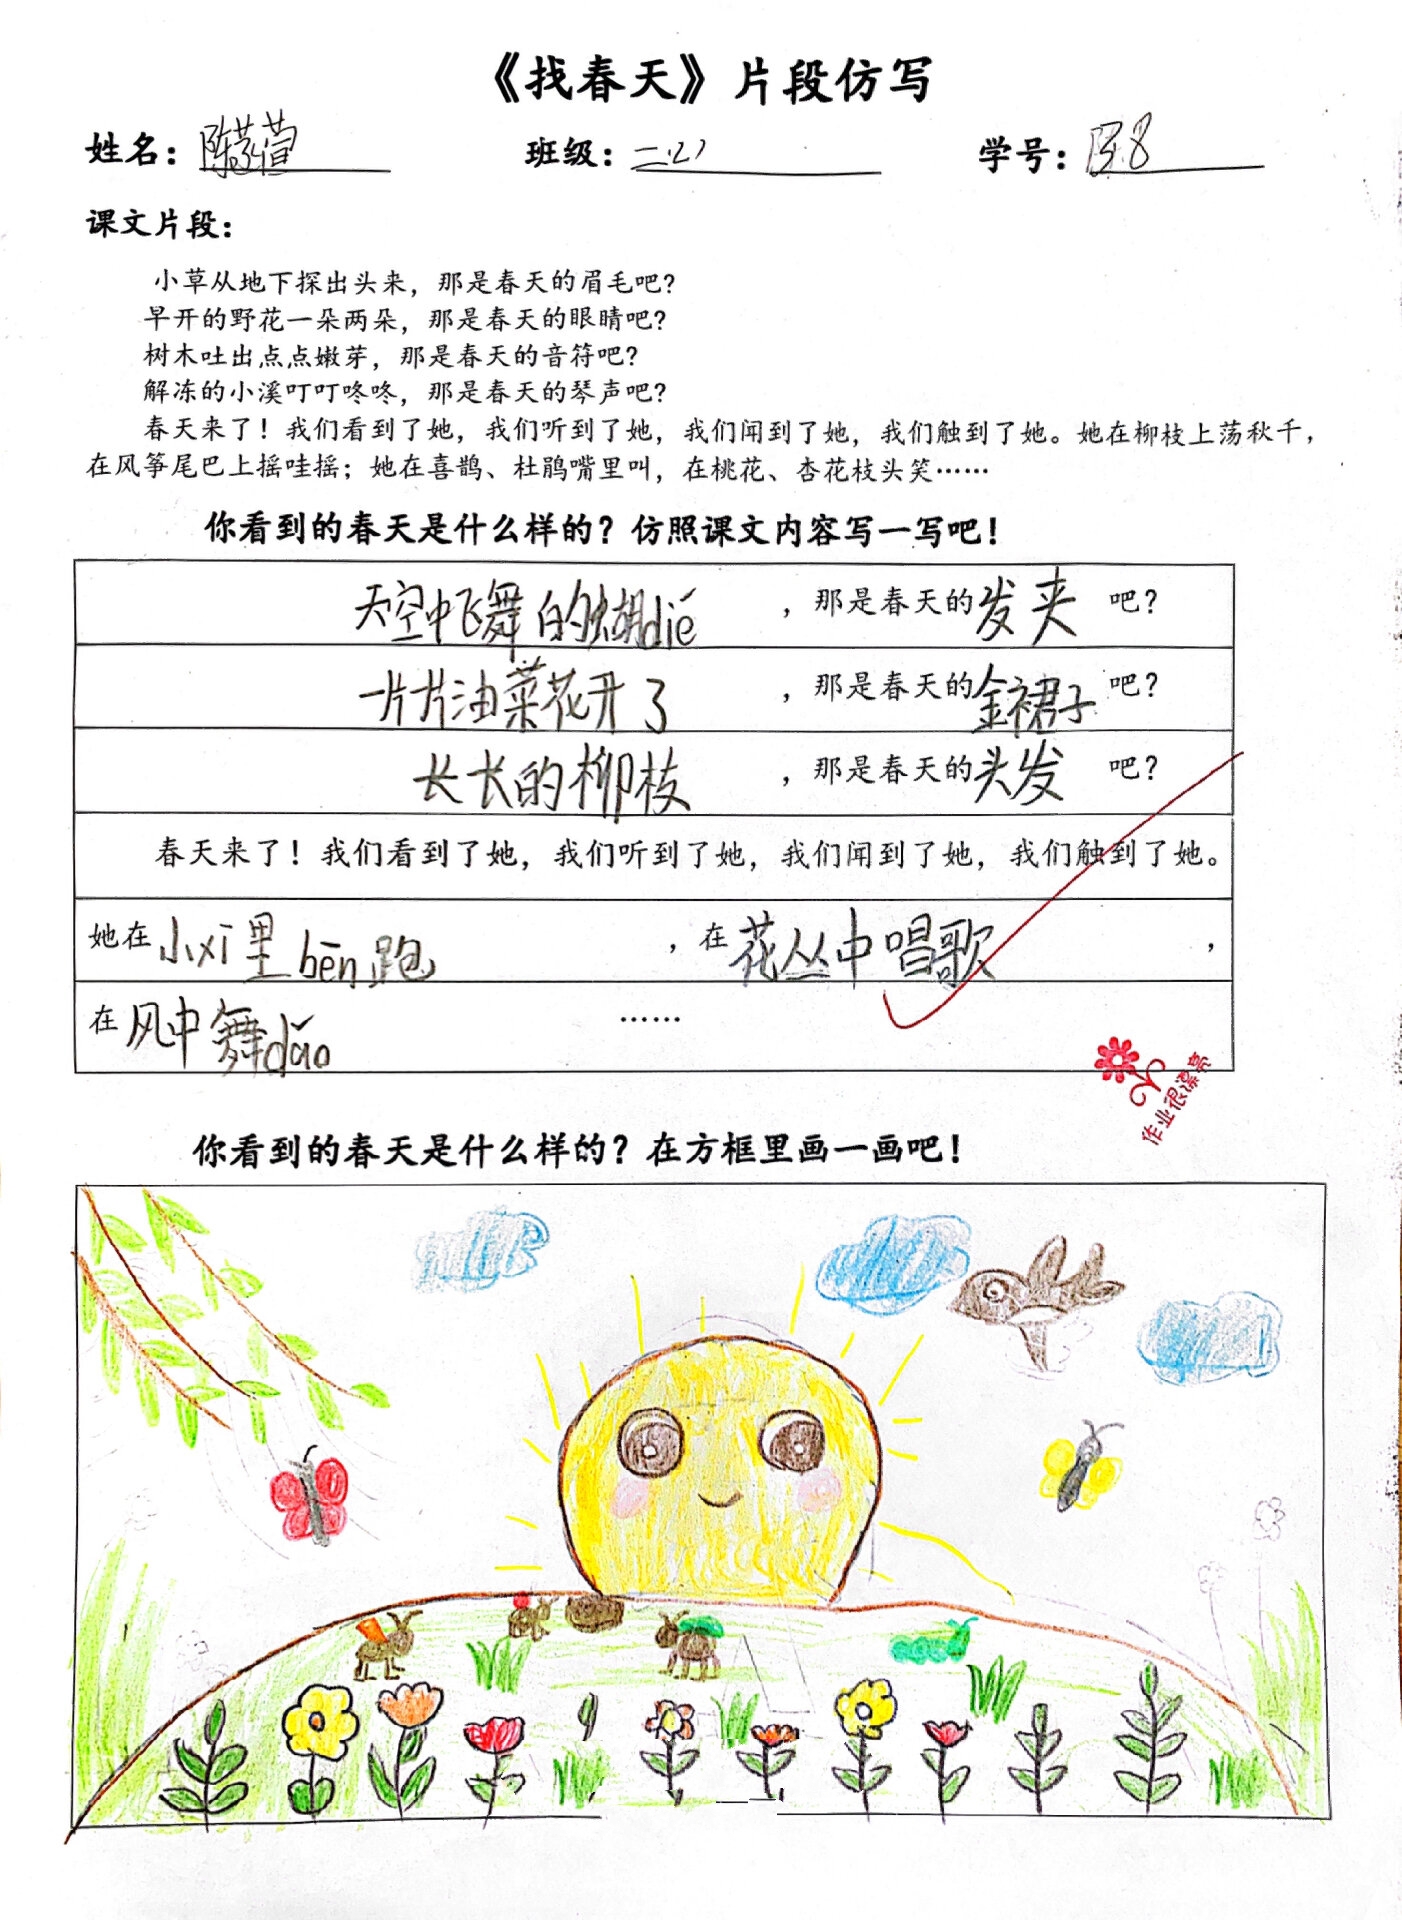 《找春天》片段仿写
姓名：陈 萱 班级：二(2) 学号：
课文片段：
小草从地下探出头来，那是春天的眉毛吧？
早开的野花一朵两朵，那是春天的眼睛吧？
树木吐出点点嫩芽，那是春天的音符吧？
解冻的小溪叮叮咚咚，那是春天的琴声吧？
春天来了！我们看到了她，我们听到了她，我们闻到了她，我们触到了她。她在柳枝上荡秋千，
在风筝尾巴上摇哇摇；她在喜鹊、杜鹃嘴里叫，在桃花、杏花枝头笑……
你看到的春天是什么样的？仿照课文内容写一写吧！
天空中飞舞的蝴dié，那是春天的发夹吧？
一片片油菜花开了，那是春天的金裙子吧？
长长的柳枝，那是春天的头发吧？
春天来了！我们看到了她，我们听到了她，我们闻到了她，我们触到了她。
她在小xī里bēn跑，在花丛中唱歌，
在风中舞dǎo……
作业很漂亮
你看到的春天是什么样的？在方框里画一画吧！